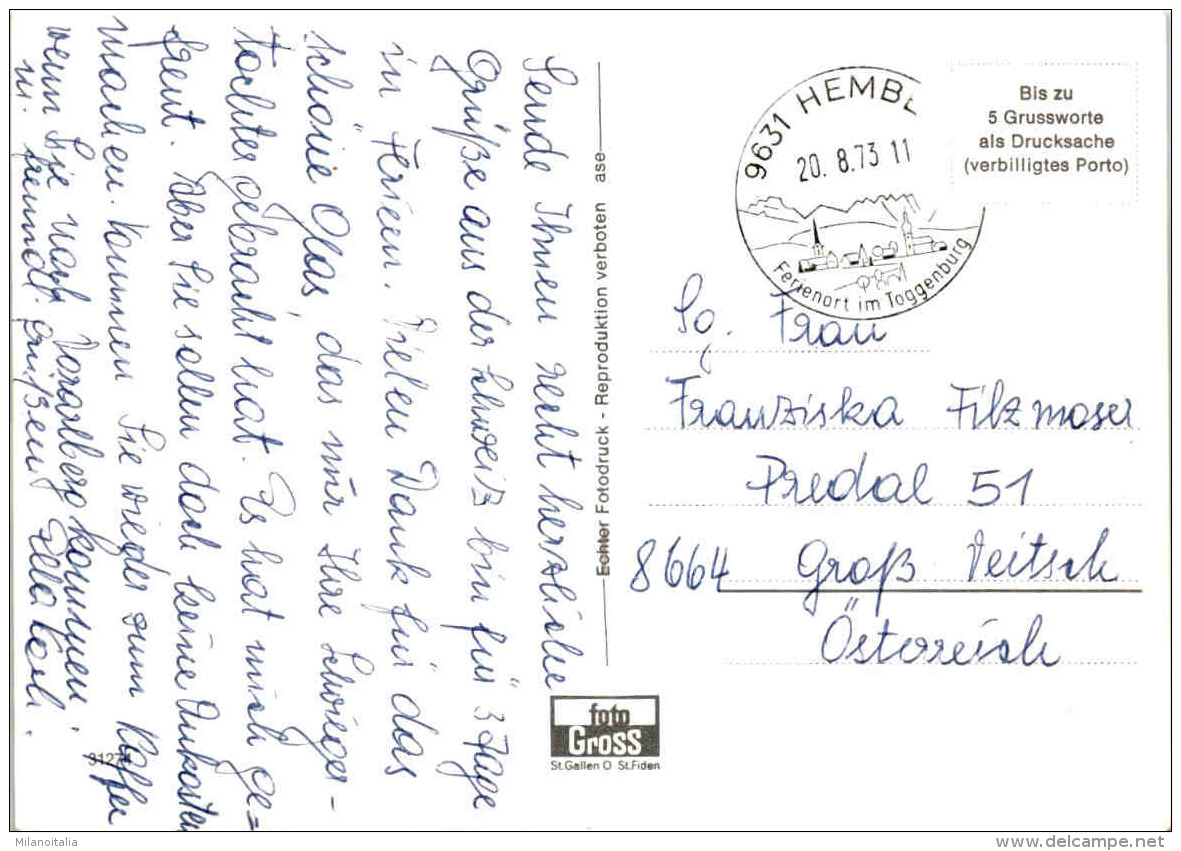 Sende Ihnen recht herzliche
Grüße aus der Schweiz bin für 3 Tage
in Ferien. Vielen Dank für das
schöne Glas, das mir Ihre Schwieger-
tochter gebracht hat. Es hat mich ge=
freut. Aber Sie sollen doch keine Unkosten
machen. Kommen Sie wieder zum Kaffee
wenn Sie nach Vorarlberg kommen.
m. freundl. grüßen
31274
Echter Fotodruck - Reproduktion verboten ase
9631 HEMBE
20. 8.73 11
Ferienort im Toggenburg
Bis zu
5 Grussworte
als Drucksache
(verbilligtes Porto)
Sg. Frau
Franziska Filzmoser
Predal 51
8664 Groß Veitsch
Österreich
foto
Gross
St.Gallen O St.Fiden
Milanoitalia
delcampe.net